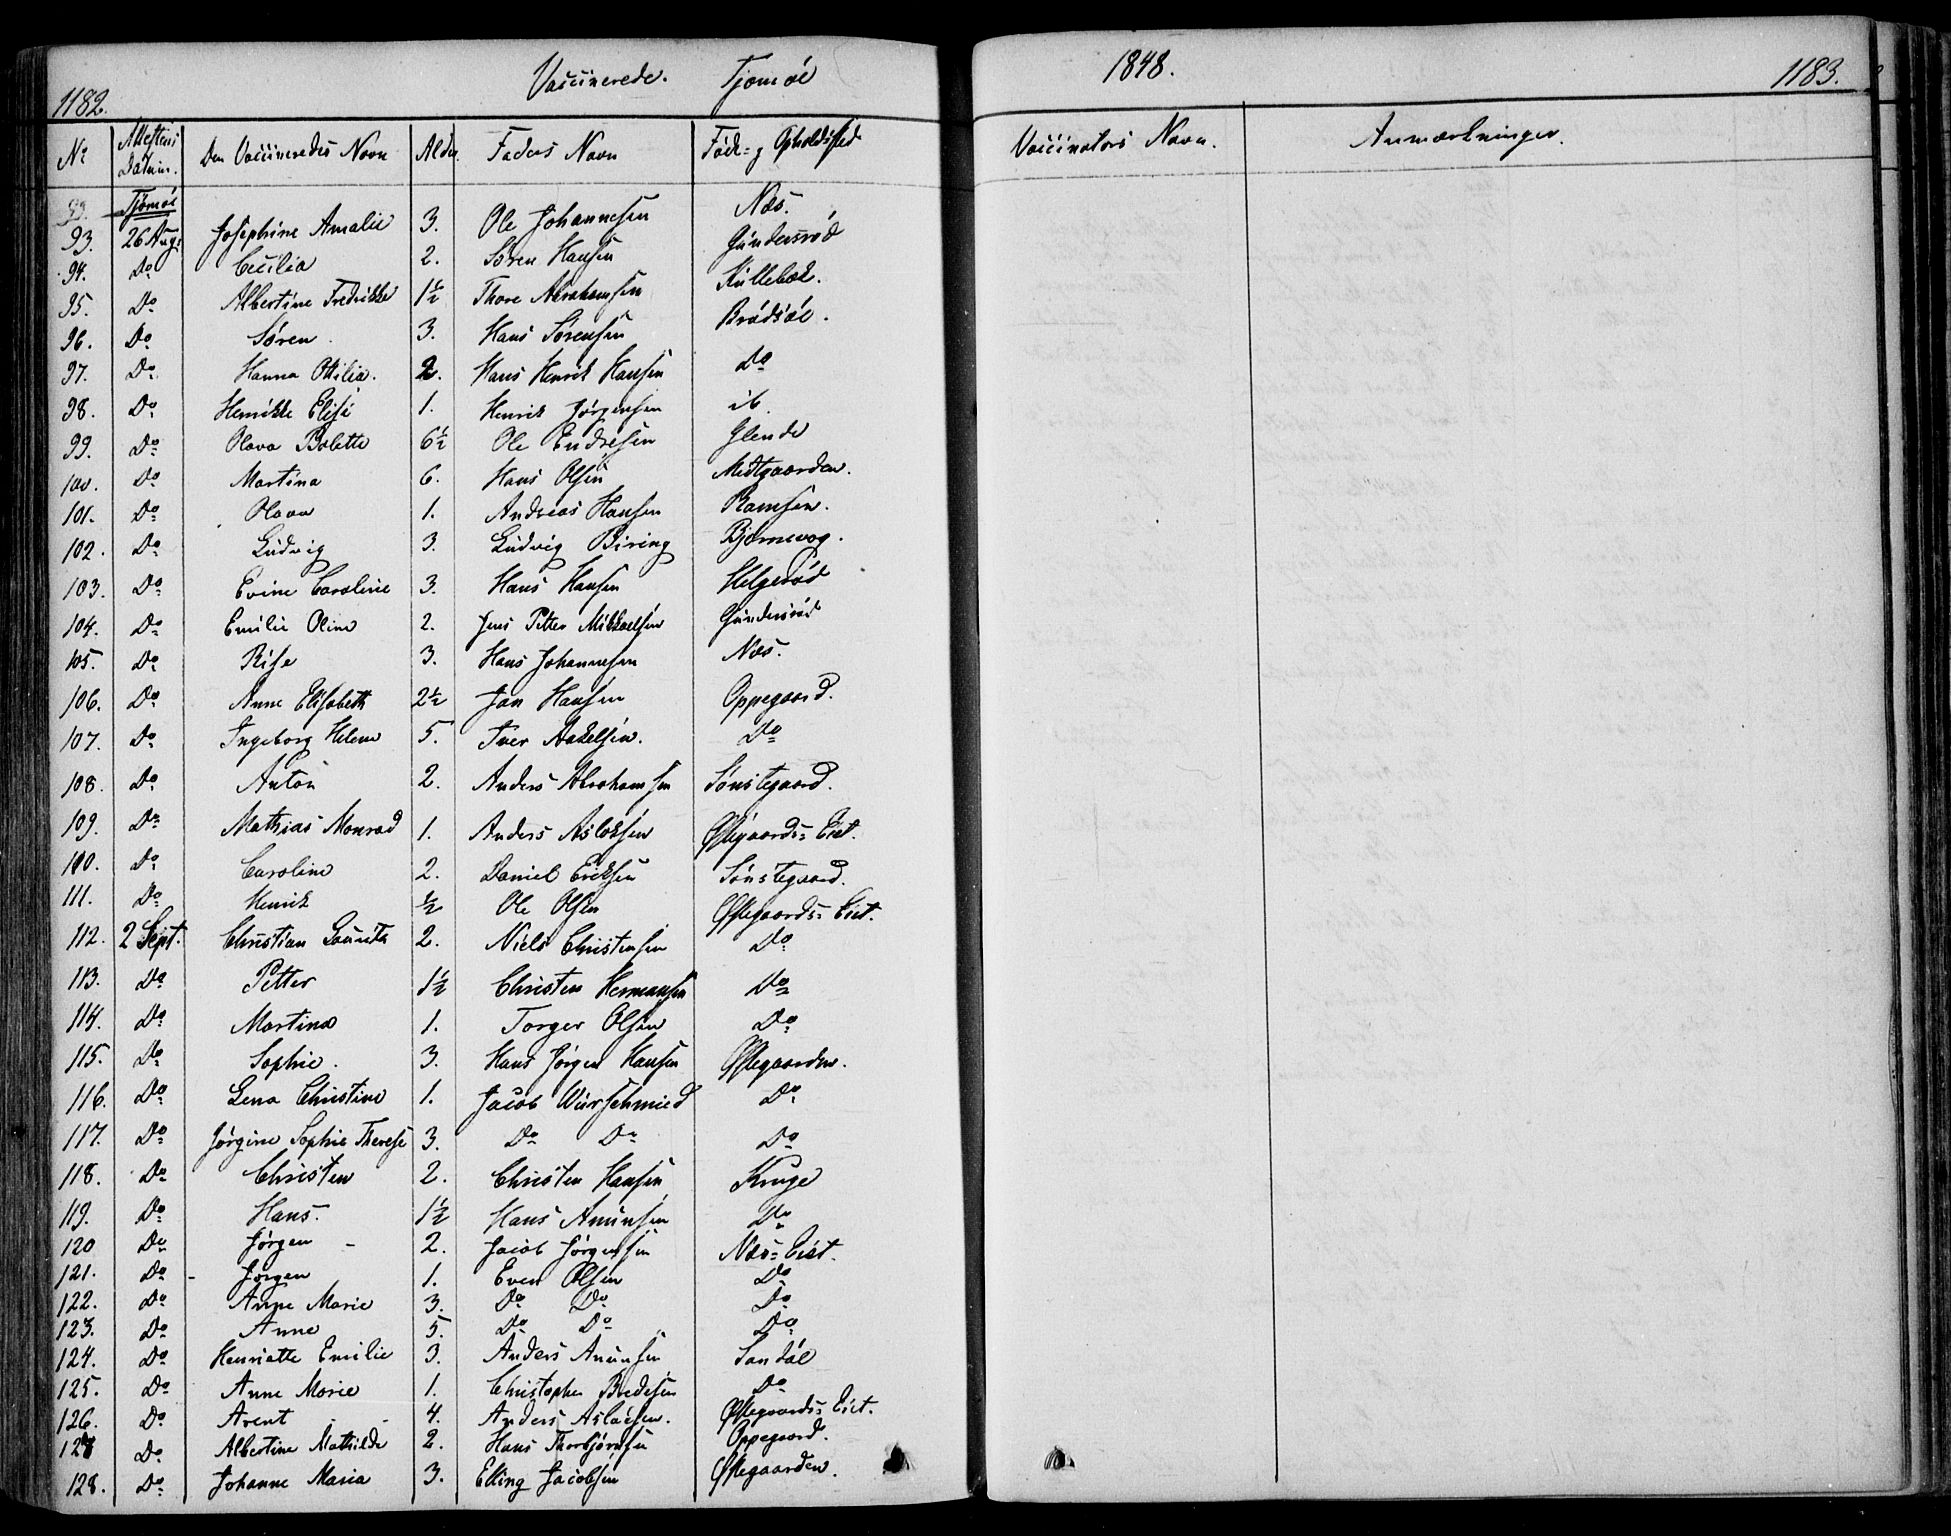 1182. Vaccinerede. Tjømøe 1848. 1183.
No Attestens Datum. Den Vaccineredes Navn Alder. Faders Navn Føde- og Opholdsted Vaccinators Navn. Anmærkninger.
Tjømøe
93. 26 Aug: Josephine Amalie 3. Ole Johannesen Næs.
94. Do Cecilia 2. Søren Hansen Gundersrød
95. Do Albertine Fredrikke 1½ Thore Abrahamsen Kullebæk.
96. Do Søren 3. Hans Sørensen Brødsøe.
97. Do Hanna Ottilia. 2. Hans Henrik Hansen Do
98. Do Henrikke Elise 1. Henrik Jørgensen ib.
99. Do Olava Bolette 6½ Ole Endresen Glende
100. Do Martina 6. Hans Olsen Medtgaarden.
101. Do Olava 1. Andreas Hansen Ramsen.
102. Do Ludvig 3. Ludvig Biring Bjørnevog.
103. Do Evine Caroline 3. Hans Hansen Helgerød
104. Do Emilie Oline 2. Jens Petter Mikkaelsen Gundersrød
105. Do Rise 3. Hans Johannesen Næs.
106. Do Anne Elisabeth 2½ Jan Hansen Oppegaard.
107. Do Ingeborg Helene 5. Iver Axelsen. Do
108. Do Anton 2. Anders Abrahamsen Sønstegaard.
109. Do Mathias Monrad 1. Anders Aslaksen Østegaards: Eiet.
110. Do Caroline 2. Daniel Eriksen Sønstegaard.
111. Do Henrik ½ Ole Olsen Østegaards: Eiet.
112. 2 Sept. Christian Lauritz 2. Niels Christensen Do
113. Do Petter 1½ Christen Hermansen Do
114. Do Martina 1. Torger Olsen Do
115. Do Sophie. 3. Hans Jørgen Hansen Østegaarden.
116. Do Lena Christine 1. Jacob Würschmied Do
117. Do Jørgine Sophie Therese 3. Do Do Do
118. Do Christen 2. Christen Hansen Kruge
119. Do Hans. 1½ Hans Amunsen Do
120 Do Jørgen 2. Jacob Jørgensen Næs: Eiet.
121. Do Jørgen 1. Even Olsen Do
122. Do Anne Marie 3. Do Do Do
123. Do Anne 5. Do Do Do
124. Do Henriette Emilie 3. Anders Amunsen Sandøe
125. Do Anne Marie 1. Christopher Bredesen Do
126. Do Arent 4. Anders Aslacsen. Østegaards: Eiet.
127 Do Albertine Mathilde 2. Hans Thorbjørnsen Oppegaard.
128. Do Johanne Maria 3. Elling Jacobsen Østegaarden.